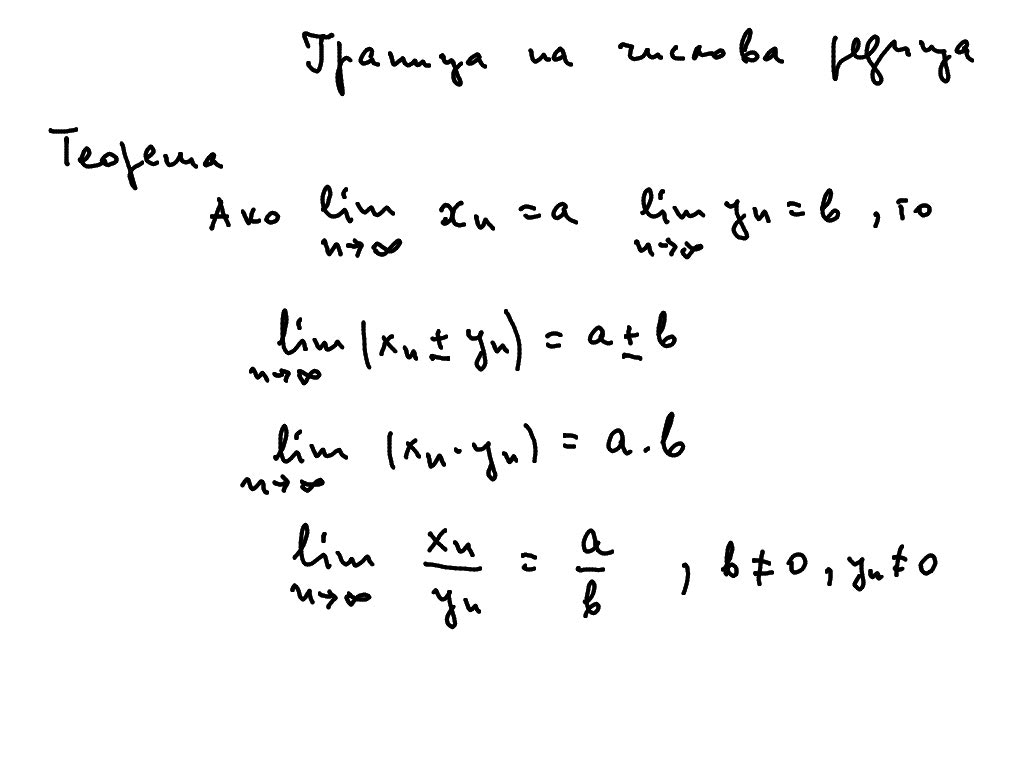 Граница на числова редица
Теорема
Ако lim n→∞ xₙ = a lim n→∞ yₙ = b , то
lim n→∞ (xₙ ± yₙ) = a ± b
lim n→∞ (xₙ · yₙ) = a . b
lim n→∞ xₙ/yₙ = a/b , b ≠ 0 , yₙ ≠ 0